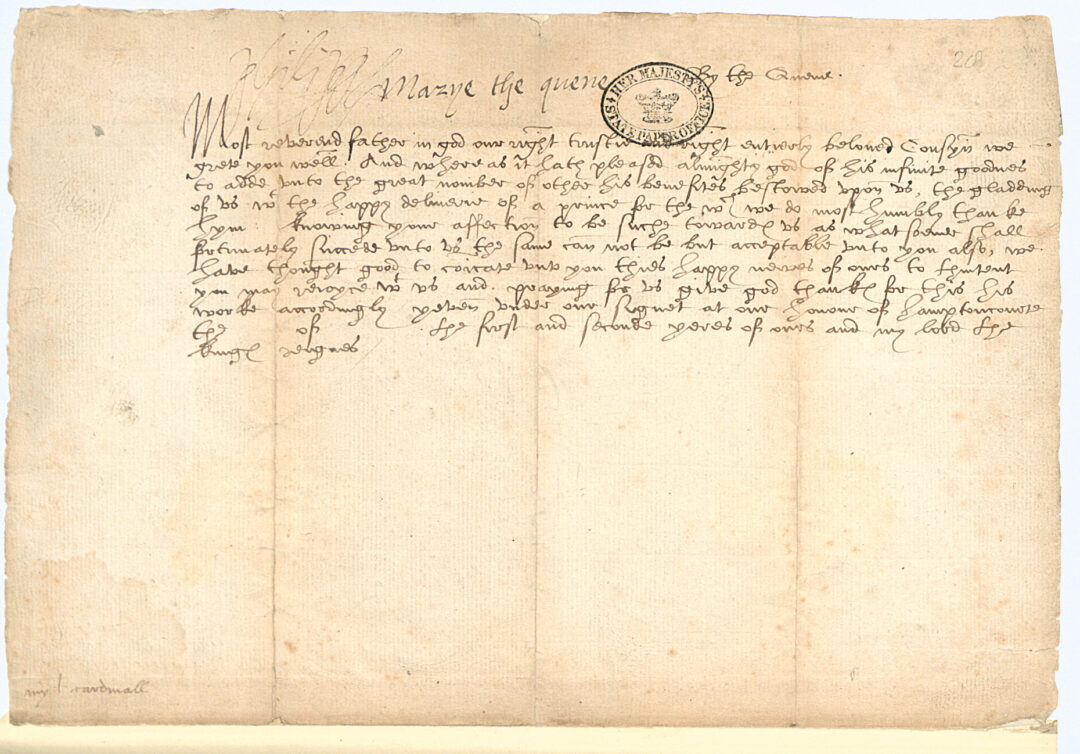 268
Philippus Marye the quene
By the Quene.
HER MAJESTY'S STATE PAPER OFFICE
Most reverend father in god our right trustie and right entierly beloved Cousyn we
grete you well. And where as it hath pleased almighty god of his infinite goodnes
to adde unto the great nomber of other his benefites bestowed upon us, the gladding
of us wt the happy deliverie of a prince for the wch we do most humbly thanke
hym. Knowing your affection to be suche towardes us as what soever shall
fortunately succede unto us the same can not be but acceptable unto you also, we
have thought good to coicate unto you thies happy newes of ours to thintent
you may rejoyce wt us and praying for us give god thankes for this his
worke accordingly yeven under our signet at our honour of hamptoncourte
the of the first and seconde yeres of ours and my lord the
kinges reignes
my l cardinall